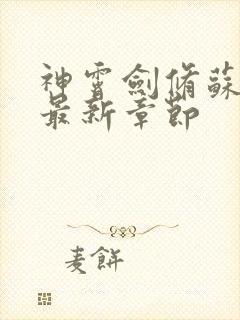 神霄劍脩蘇
最新章節
麦餅